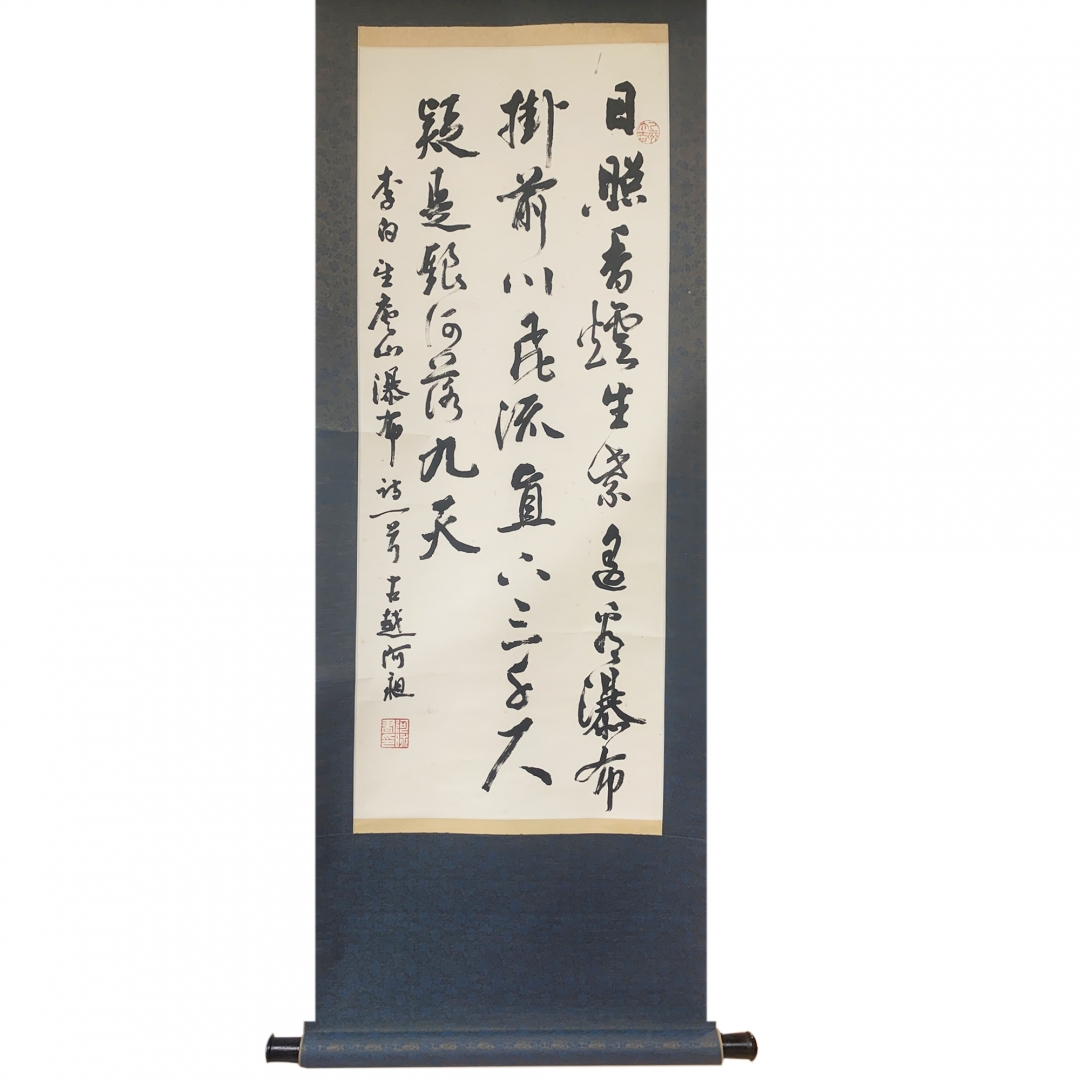 日照香爐生紫遥看瀑布
掛前川飛流直下三千尺
疑是銀河落九天
李白望廬山瀑布詩一首古越阿祖